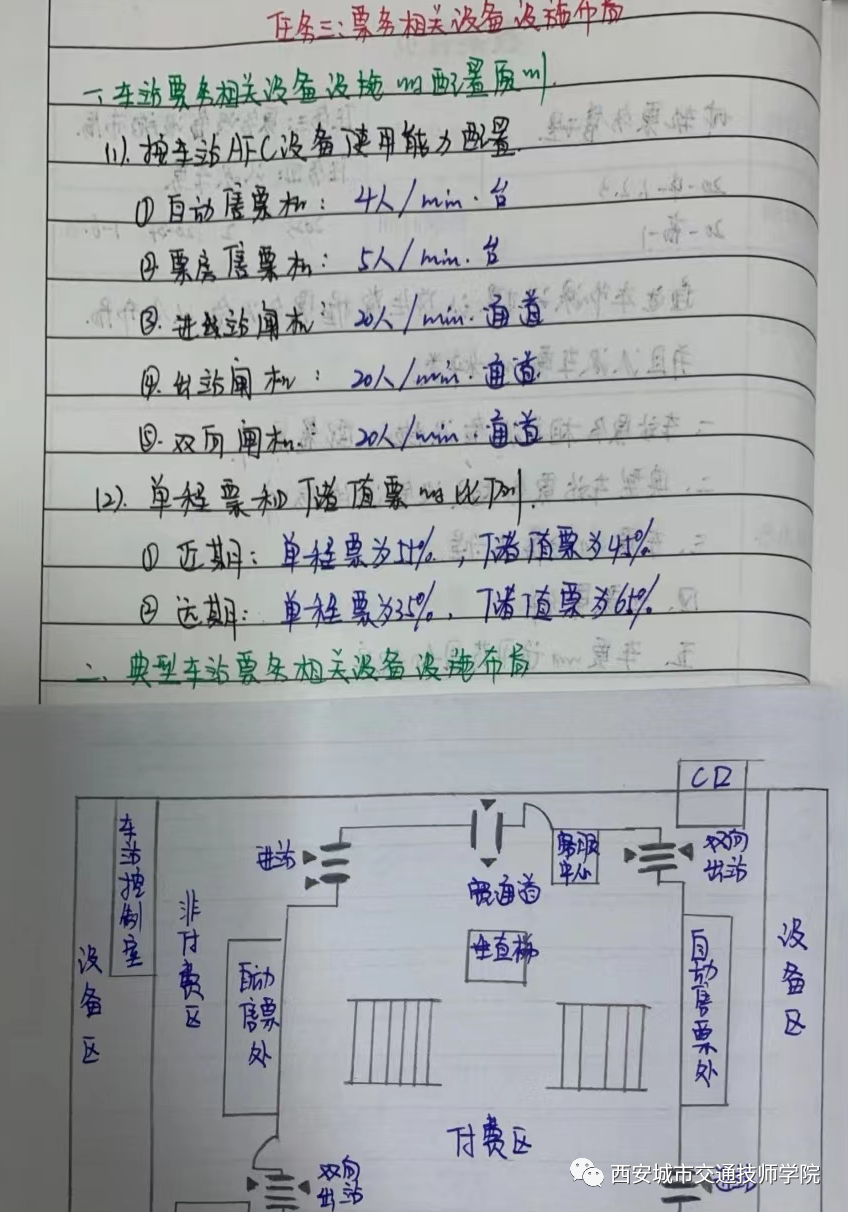 任务三：票务相关设备设施布局
一、车站票务相关设备设施的配置原则.
(1). 按车站AFC设备使用能力配置.
① 自动售票机： 4人/min·台
② 票房售票机： 5人/min·台
③. 进站闸机： 20人/min·通道
④. 出站闸机： 20人/min·通道.
⑤. 双向闸机： 20人/min·通道
(2). 单程票和储值票的比例.
① 近期：单程票为55%，储值票为45%.
② 远期：单程票为35%，储值票为65%.
二、典型车站票务相关设备设施布局
C口
车站控制室
进站
宽通道
客服中心
双向出站
设备区
非付费区
自动售票处
垂直梯
自动售票处
设备区
付费区
双向出站
进站
西安城市交通技师学院